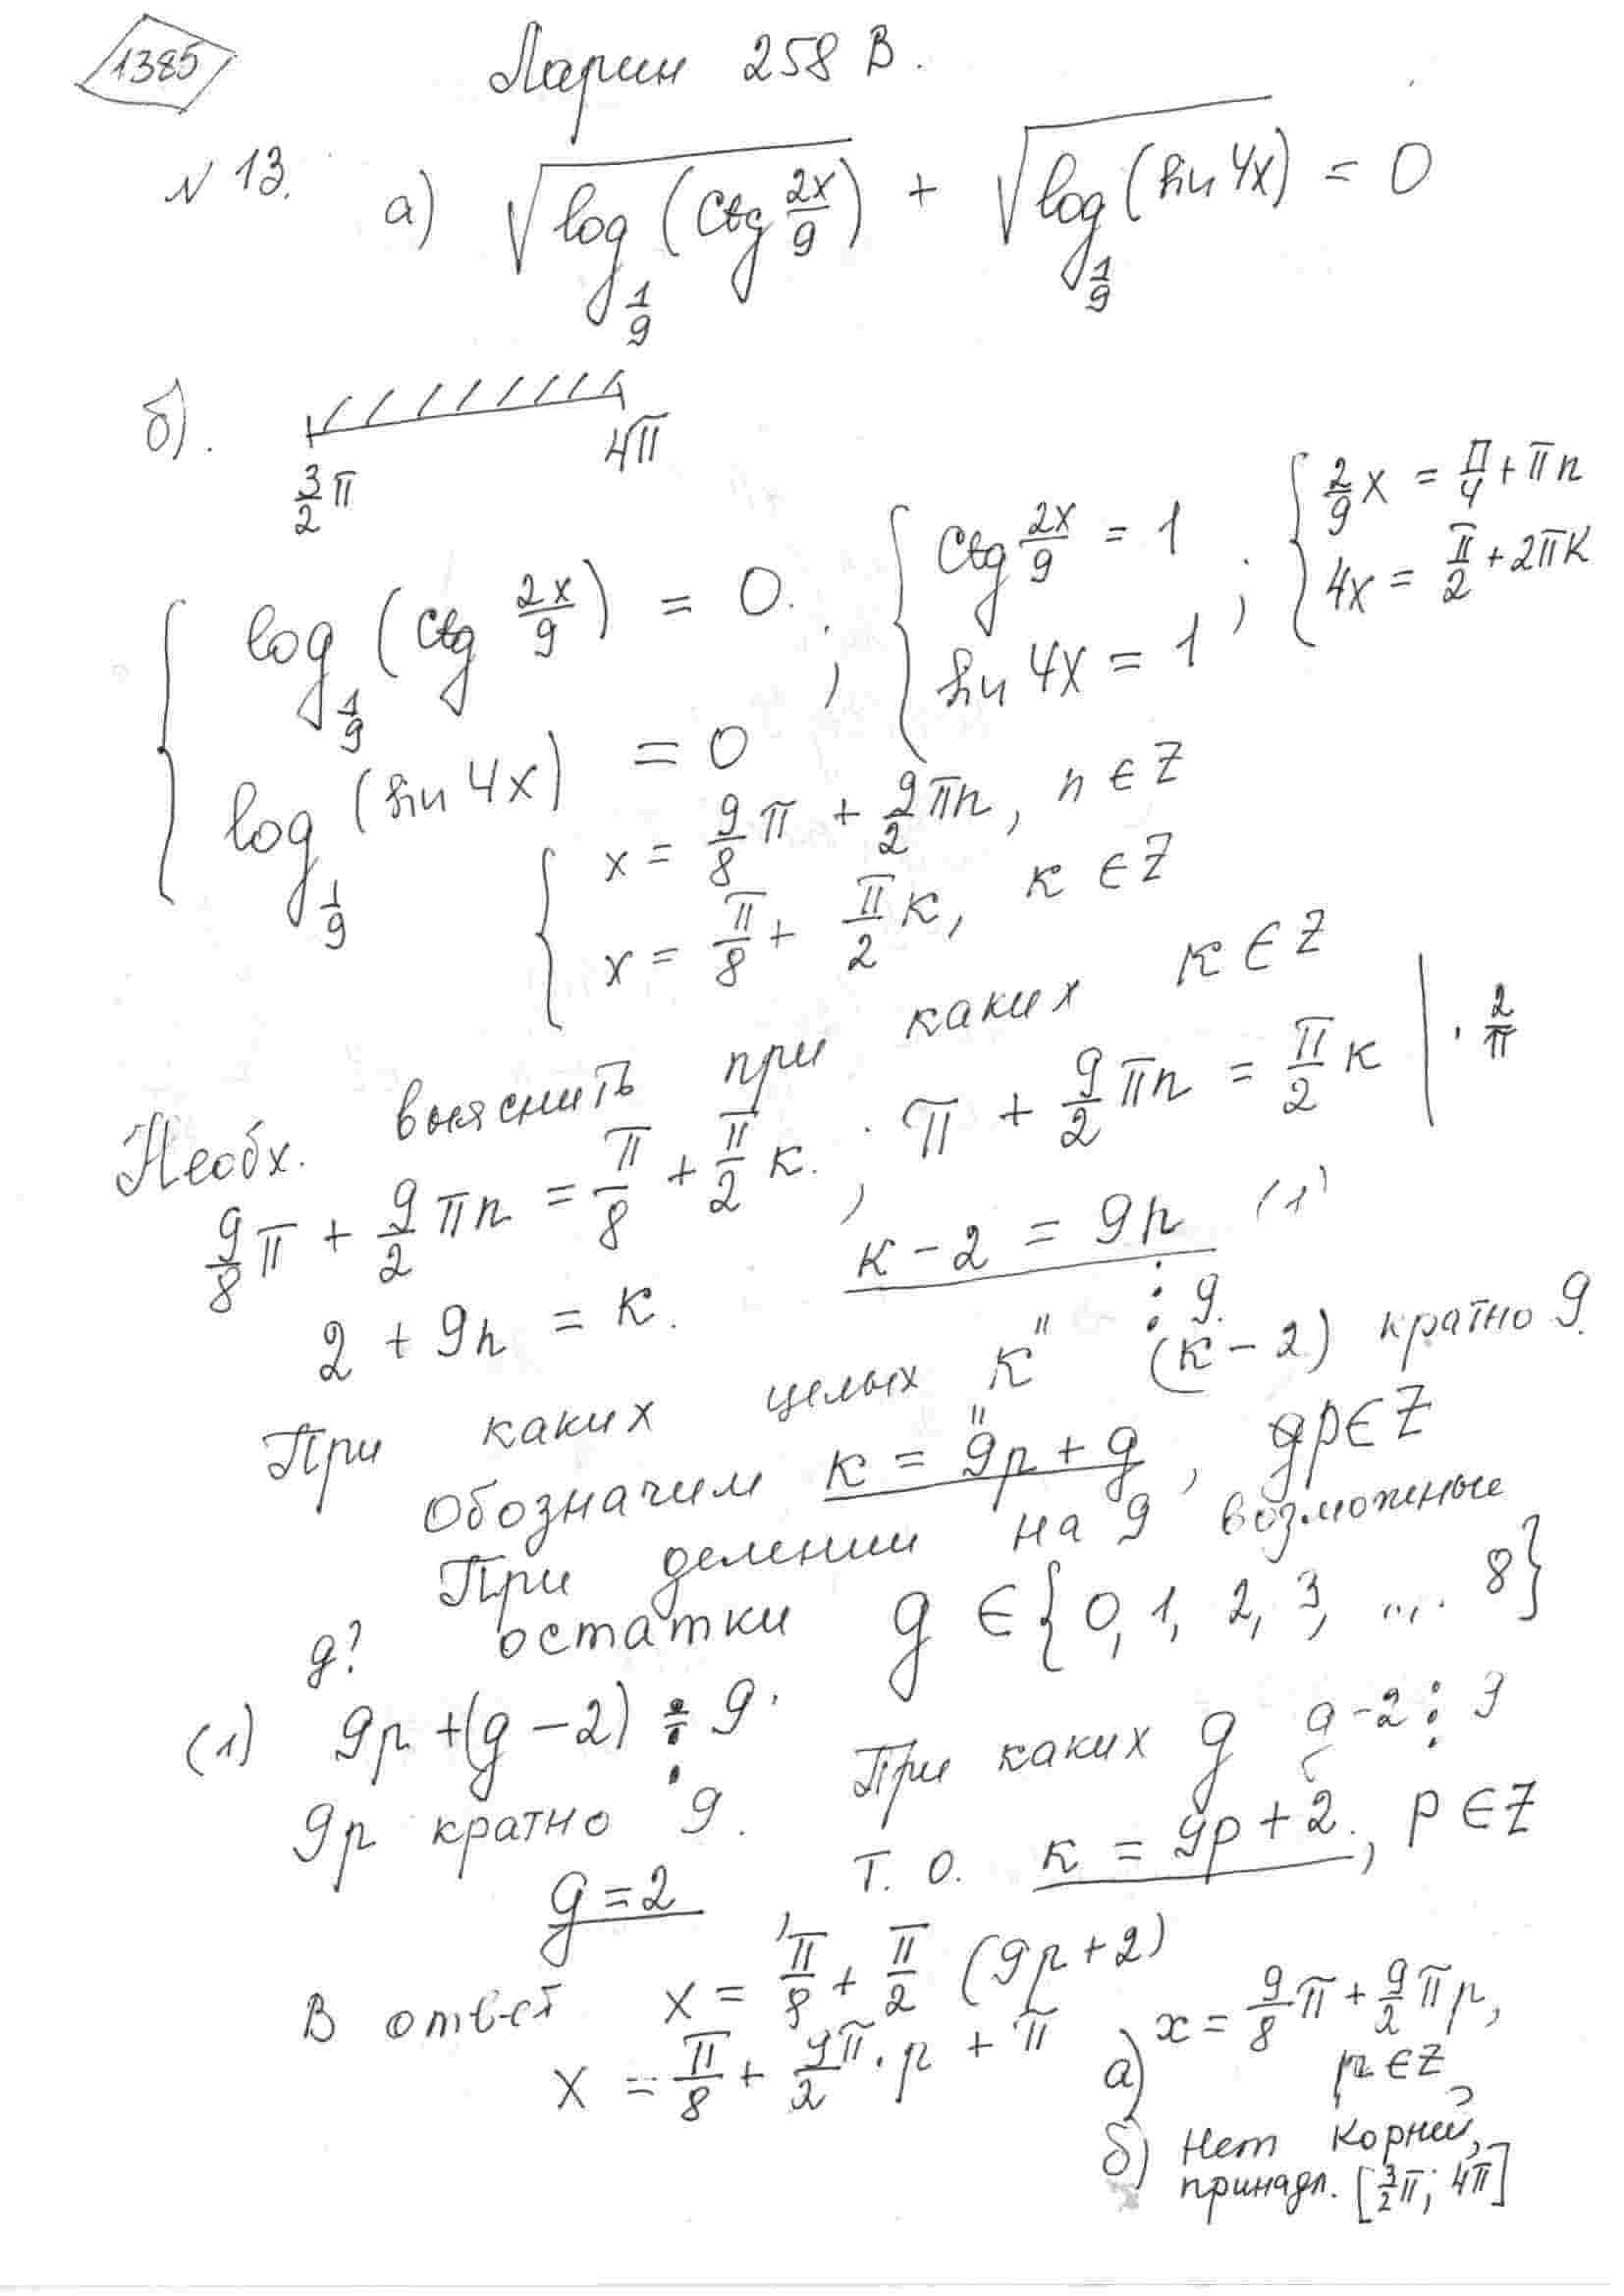 1385
Ларин 258 В.
N 13. а) √(log_{1/9}(ctg 2x/9)) + √(log_{1/9}(sin 4x)) = 0
б). 3/2 π 4π
{ log_{1/9}(ctg 2x/9) = 0. ; { ctg 2x/9 = 1 ; { 2/9 x = π/4 + πn
log_{1/9}(sin 4x) = 0 sin 4x = 1 4x = π/2 + 2πk
{ x = 9/8 π + 9/2 πn, n ∈ Z
x = π/8 + π/2 k, k ∈ Z
Необх. выяснить при каких k ∈ Z
9/8 π + 9/2 πn = π/8 + π/2 k. ; π + 9/2 πn = π/2 k | · 2/π
2 + 9n = k. k - 2 = 9n (1)
⋮ 9.
При каких целых "k" (k - 2) кратно 9.
Обозначим k = 9p + q, p ∈ Z
При делении на 9 возможные
q? остатки q ∈ {0, 1, 2, 3, ... 8}
(1) 9p + (q - 2) ⋮ 9.
9p кратно 9. При каких q q - 2 ⋮ 9
q = 2, т. о. k = 9p + 2., p ∈ Z
В ответ x = π/8 + π/2 (9p + 2)
x = π/8 + 9π/2 · p + π
а) x = 9/8 π + 9/2 πp,
p ∈ Z
б) Нет корней,
принадл. [3/2 π; 4π]